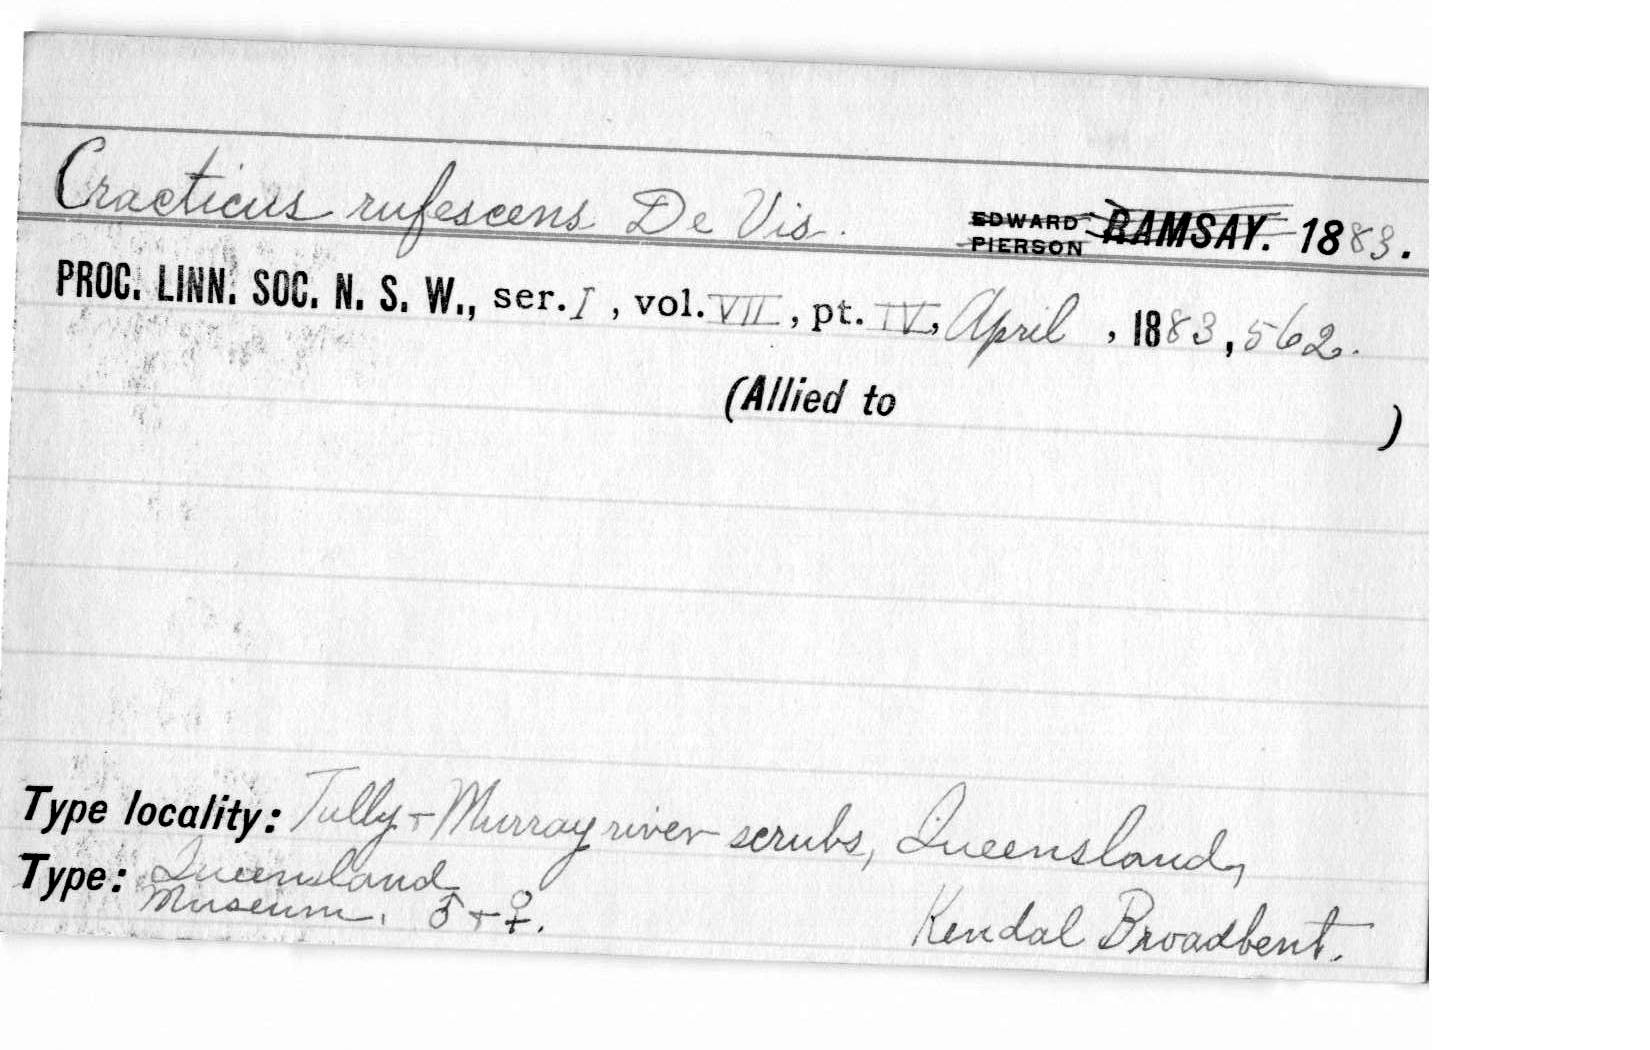 Cracticus rufescens De Vis. EDWARD PIERSON RAMSAY. 1883.
PROC. LINN. SOC. N. S. W., ser. I, vol. VII, pt. IV, April, 1883, 562.
(Allied to )
Type locality: Tully + Murray river scrubs, Queensland,
Type: Queensland
Museum. ♂ + ♀. Kendal Broadbent.